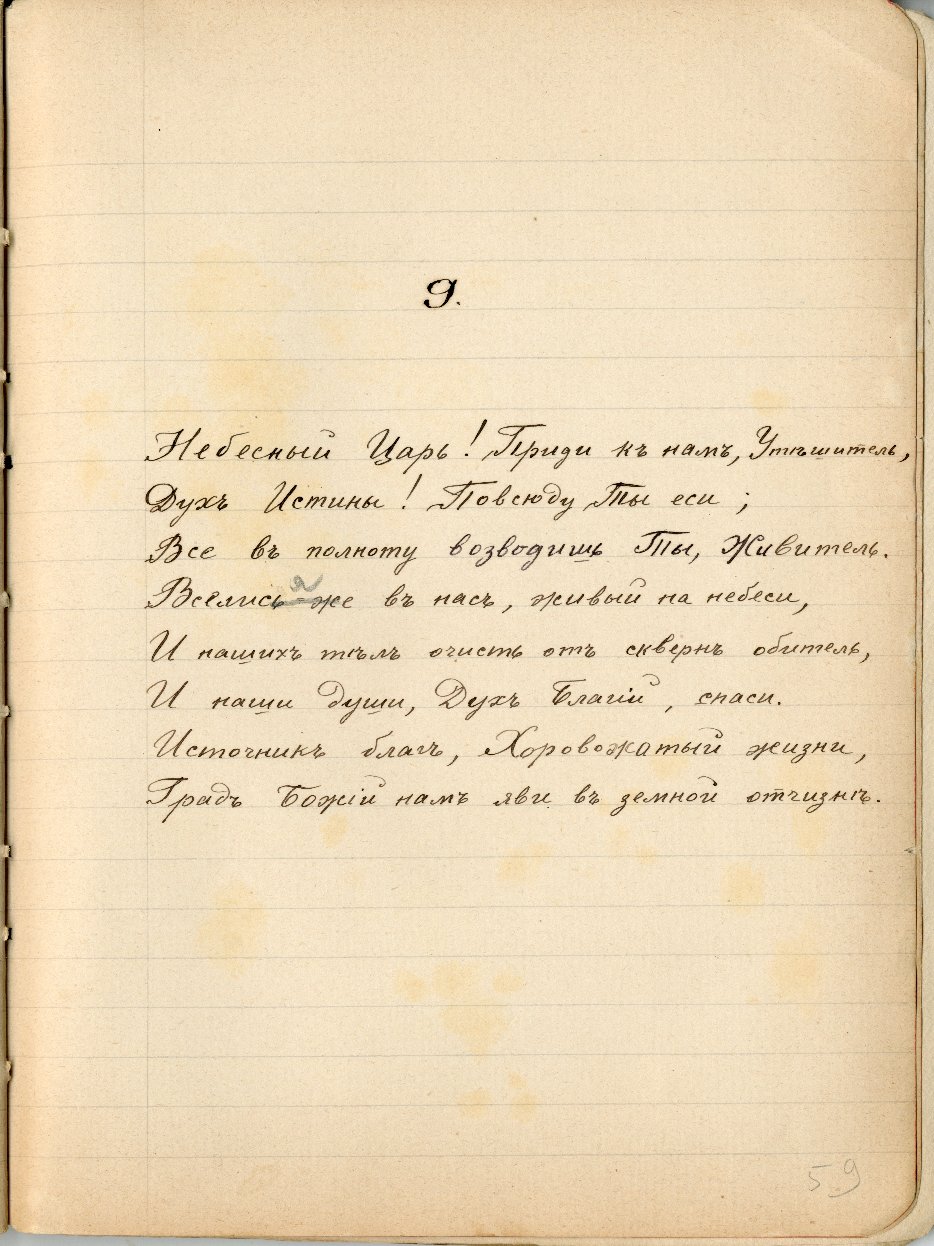 9.
Небесный Царь! Приди къ намъ, Утѣшитель,
Духъ Истины! Повсюду Ты еси;
Все въ полноту возводишь Ты, Живитель.
Вселись же въ насъ, живый на небеси,
И нашихъ тѣлъ очисть отъ сквернъ обитель,
И наши души, Духъ Благій, спаси.
Источникъ благъ, Хоровожатый жизни,
Градъ Божій намъ яви въ земной отчизнѣ.
59